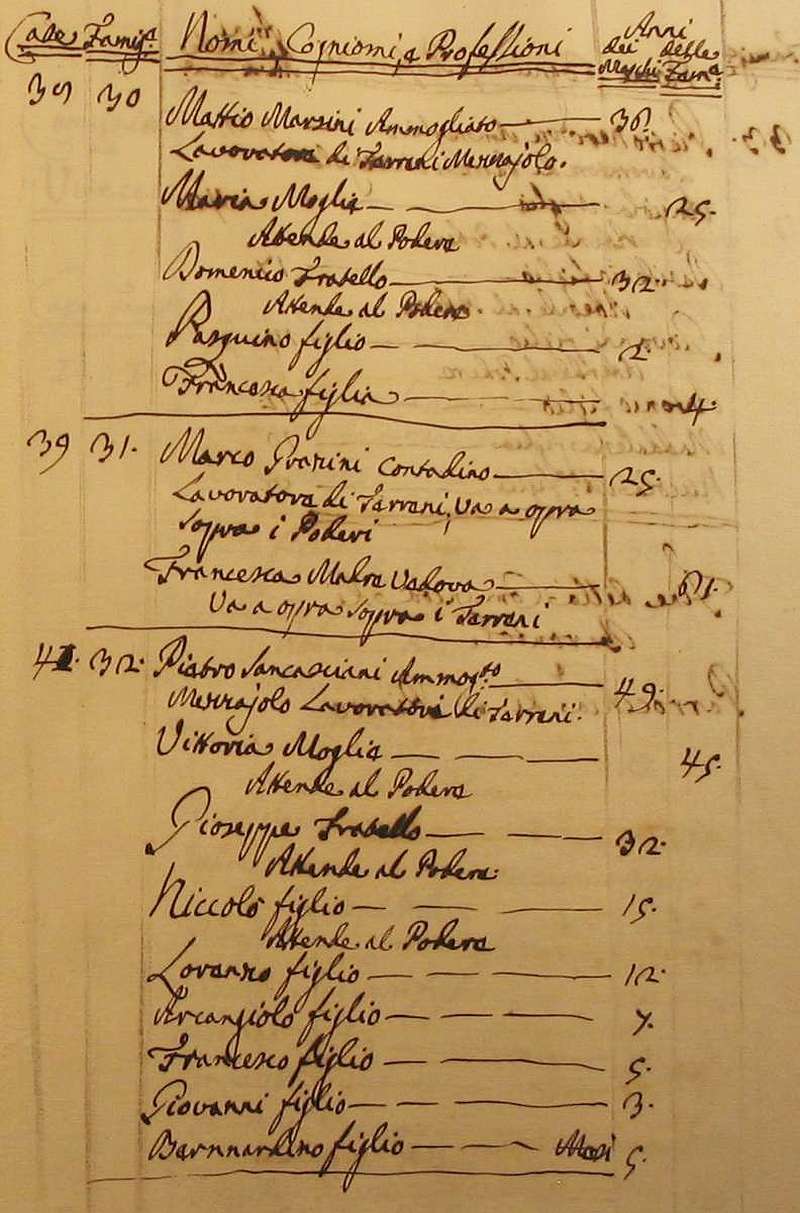 Case Famig.a Nomi, Cogniomi, e Professioni Anni
dei delle
Maschi Fam.e
39 30 Mattio Marzini Ammogliato 36.
Lavoratore di Terreni Mezzajolo.
Maria Moglie 25.
Attende al Podere
Domenico Fratello 32.
Attende al Podere
Pasquino figlio 2.
Francesca figlia 4.
39 31. Marco Grazini Contadino 25.
Lavoratore di Terreni, va a opra
sopra i Poderi
Francesca Madre Vedova 61.
Va a opra sopra i Terreni
41. 32. Pietro Sancasciani Ammog.to 49.
Mezzajolo Lavoratore di Terreni.
Vittoria Moglie 45.
Attende al Podere
Gioseppe Fratello 32.
Attende al Podere.
Niccolò figlio 15.
Attende al Podere
Lorenzo figlio 12.
Arcangiolo figlio 7.
Francesco figlio 5.
Giovanni figlio 3.
Bernnardino figlio Mesi 5.